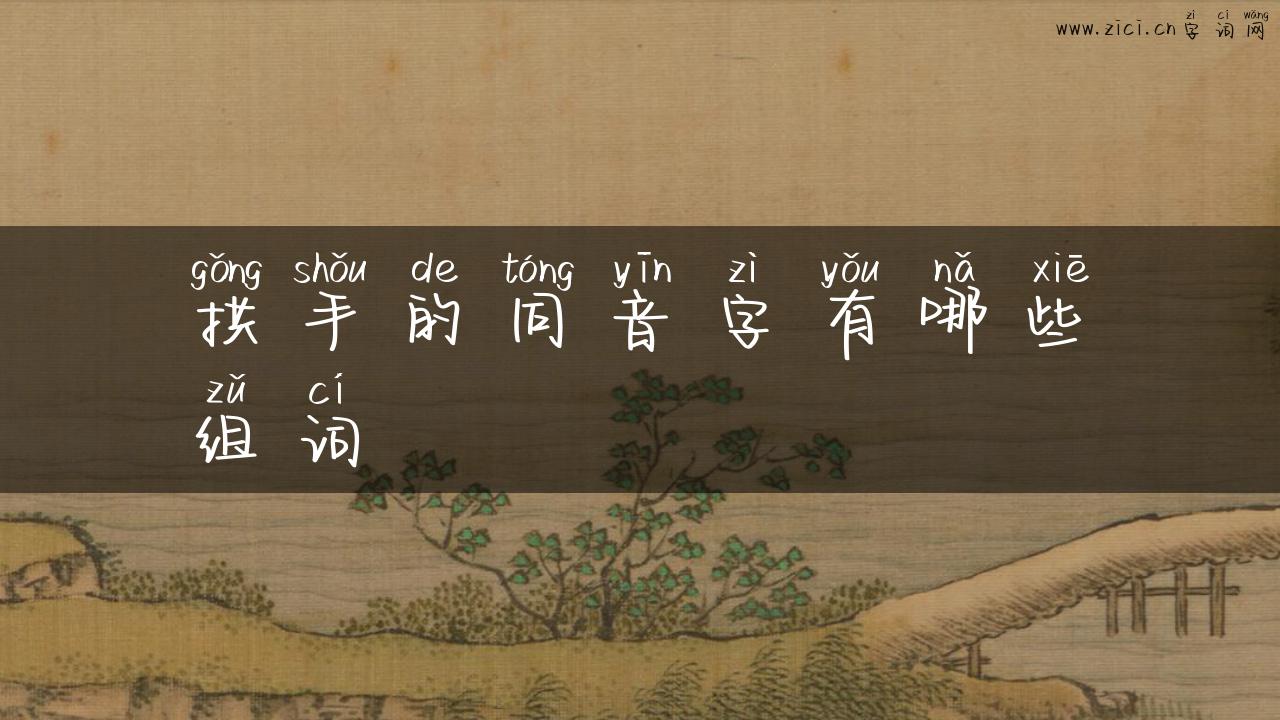 zì cí wǎng
www.zici.cn 字词网
gǒng shǒu de tóng yīn zì yǒu nǎ xiē
拱手的同音字有哪些
zǔ cí
组词